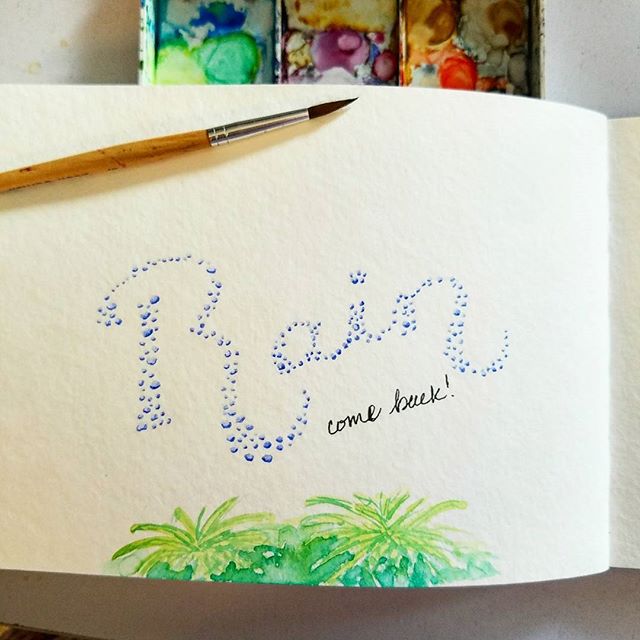 Rain
come back!